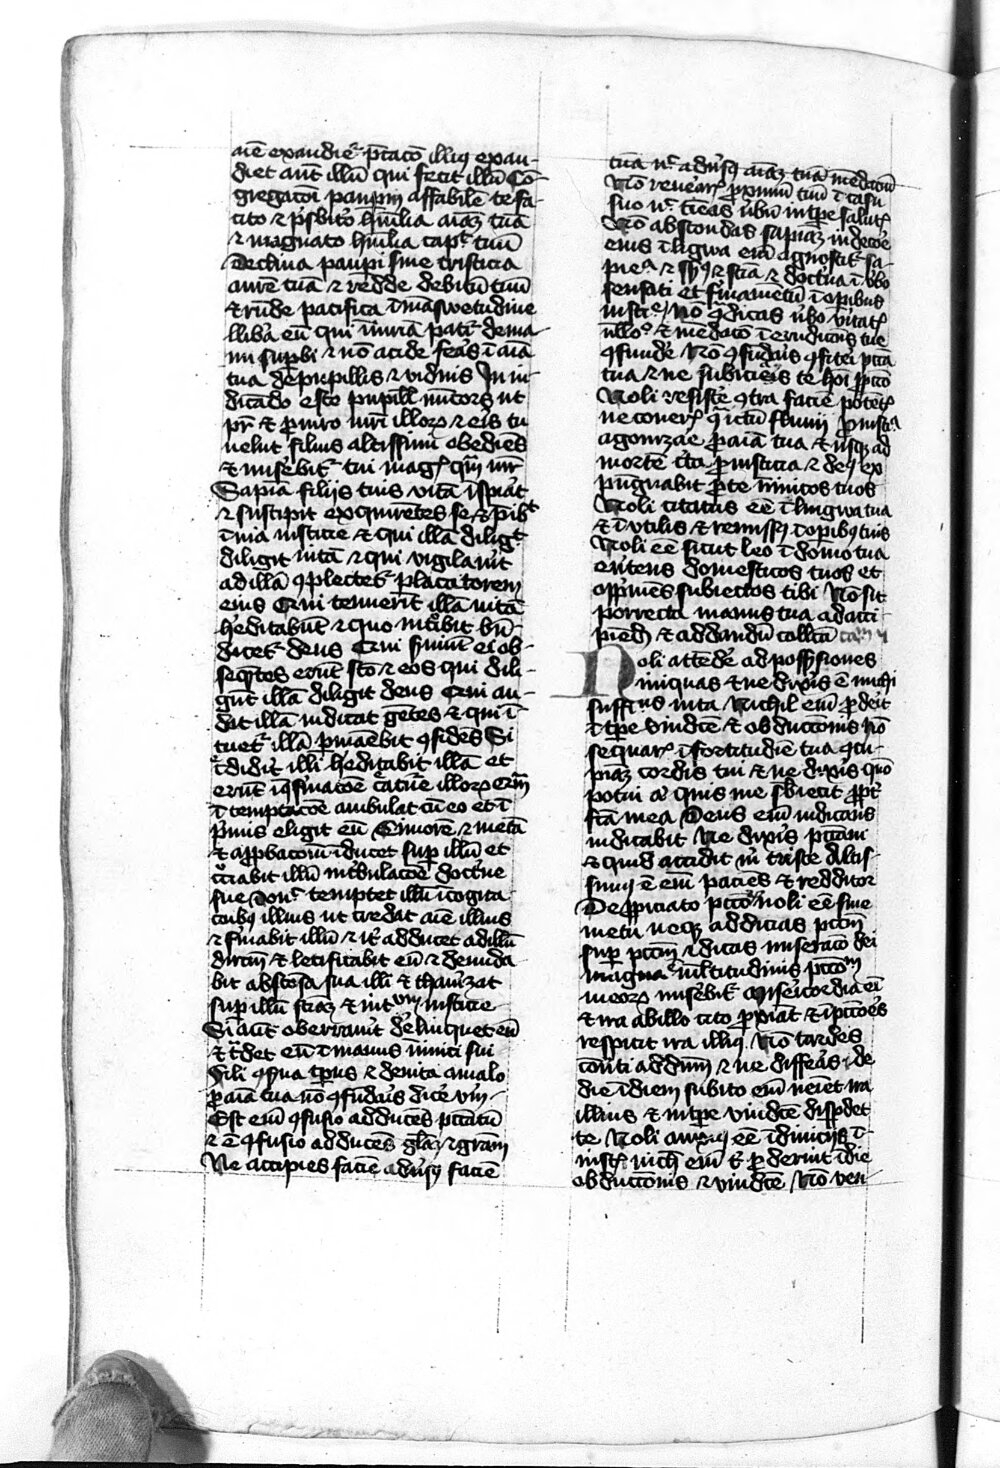 aīe exaudiēt p̄catō illiꝰ exau-
diet aut̄ illū qui fecit illū Co-
gregacōi paupm̄ affabilē te fa
cito ⁊ p̄sbitō hūilia aīaꝫ tuā
⁊ magnato hūilia capt̄ tuū
Declina paup̄i sine tristicia
aurē tuā ⁊ redde debitū tuū
⁊ rn̄de pacifica ī māswetudine
llibā eū qui īniuriā patīt de ma
nu supbi ⁊ nō acide feras ī aīa
tua De pupillis ⁊ viduis In iu-
dicādo esto pupill' miīcors ut
pr̄ ⁊ p̄ viro mr̄i illoꝝ ⁊ eis tu
uelut filius altissimi obediēs
⁊ miseb̄it tui maḡ qm̄ mr̄
Sapīa filijs tuis vitā īspirat
⁊ suscipit exquirētes se ⁊ p̄ibit
ī via iusticie ⁊ qui illā diligt̄
diligit uitā ⁊ qui vigilauīt
ad illā ꝯplectēt placatorem
eius Qui tenuerīt illā uitā
h'editabūt ⁊ quo ītroibit bn̄-
dicet deus Qui s̄uiūt ei ob-
seqn̄tes erūt stō ⁊ eos qui dili-
gūt illā diligit deus Qui au-
dit illā iudicat gētes ⁊ qui ī
tuet illā p̄manēbit ꝯfidēs Si
c̄didit illi h'editabit illā et
erūt ī ꝯfirmacōe c̄atūe illoꝝ Qm̄
ī temptacōe ambulat cū eo et ī
p̄mis eligit eū Timorē ⁊ metū
⁊ app̄bacōm īducet sup illū et
c̄ciabit illū ī t'bulacōe doct'ne
sue Donc̄ temptet illū ī cogita
cōibꝰ illius ut credat aīe illius
⁊ firmabit illū ⁊ it̄ adducet ad illū
dir̄cm̄ ⁊ letificabit eū ⁊ denuda
bit abscōsa sua illi ⁊ thaurizat
sup illū sciāꝫ ⁊ int̄cm̄ iusticie
Si aut̄ oberrauit derelinquet eū
⁊ t̄det eū ī manus inimici sui
Fili ꝯserua tp̄us ⁊ deuita a malo
p̄ aīa tua nō ꝯfūdaīs dicē vm̄-
Est em̄ ꝯfusio adducēs pctātū
⁊ ē ꝯfusio adducēs gl'aꝫ ⁊ gr̄am
Ne accipies faciē aduīsꝰ faciē
tuā n̄c adūsꝰ aīaꝫ tuā mēdaciū
Nō reueariſ pxīmū tuū ī casu
suo n̄c tīeas ūbū in tp̄e salutꝭ
Nō abscondas sapīaꝫ in decoē
eius ī lingwa em̄ agnoscit̄ sa-
pīe ⁊ ſꝰ ⁊ scīa ⁊ doct'na ī ūbo
sensati et firmamētū ī opibus
iusticīe Nō ꝯ̄dicas ūbo ūitatꝭ
ullo ⁊ mēdacō ī erudicōis tue
ꝯfundē Nō ꝯfūdaīs ꝯfitei pctā
tua ⁊ ne subiciēis te hōi p̄ pctō
Noli resistē ꝯtra faciē potētꝭ
ne coneriſ q̄ ictū fluuij p̄ iusticia
agonizae p̄ aīa tua ⁊ usqꝫ ad
mortē c̄ta p̄ iusticia ⁊ deꝰ ex
pungnabit p̄ te inimicos tuos
Noli citatus eē ī lingwa tua
⁊ ī utilis ⁊ remissꝰ ī opibꝰ tuis
Noli eē sicut leo ī domo tua
euītens domesticos tuos et
opp̄mēs subiectos tibi Nō sit
porrecta manus tua ad acci
piēd' ⁊ ad dandū coll'ctā
Noli attēdē ad possꝭsiones
iniquas ⁊ ne dixis ē michi
suffic̄iens uita Nichil em̄ p̄deīt
ī tp̄e vindicte ⁊ obductōnis Nō
sequariſ ī fortitudīe tua ꝯcu-
pīaꝫ cordis tui ⁊ ne dixis quō
potui aut quis me s̄biecit pp̄t̄
fcā mea Deus em̄ iudicans
iudicabit Ne dixis peccaui
⁊ quid accidit m̄ triste Altis-
simꝰ ē em̄ paciēs ⁊ redditor
De p̄piciato pctō noli eē sine
metu neqꝫ addicias pctm̄
sup pctm̄ ⁊ dicas miseracō dei
magna ml̄titudinis pctōꝝ
meoꝝ miseb̄it Misericordia em̄
⁊ ira ab illo cito pxīat ⁊ ī pctōres
respicit ira illiꝰ Nō tardes
cōuti ad dūm ⁊ ne diffeas de
die ī diem subito em̄ ueiet ira
illius ⁊ in tp̄e vindicte disp̄det
te Noli anxiꝰ eē ī diuicijs ī-
iustꝭ nich' em̄ t' p̄derunt ī die
obductōnis ⁊ vindicte Nō ven-